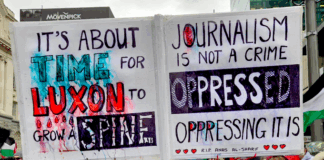 MÖVENPICK
IT'S ABOUT
TIME FOR
LUXON TO
GROW A SPINE
JOURNALISM
IS NOT A CRIME
OPPRESSED
OPPRESSING IT IS